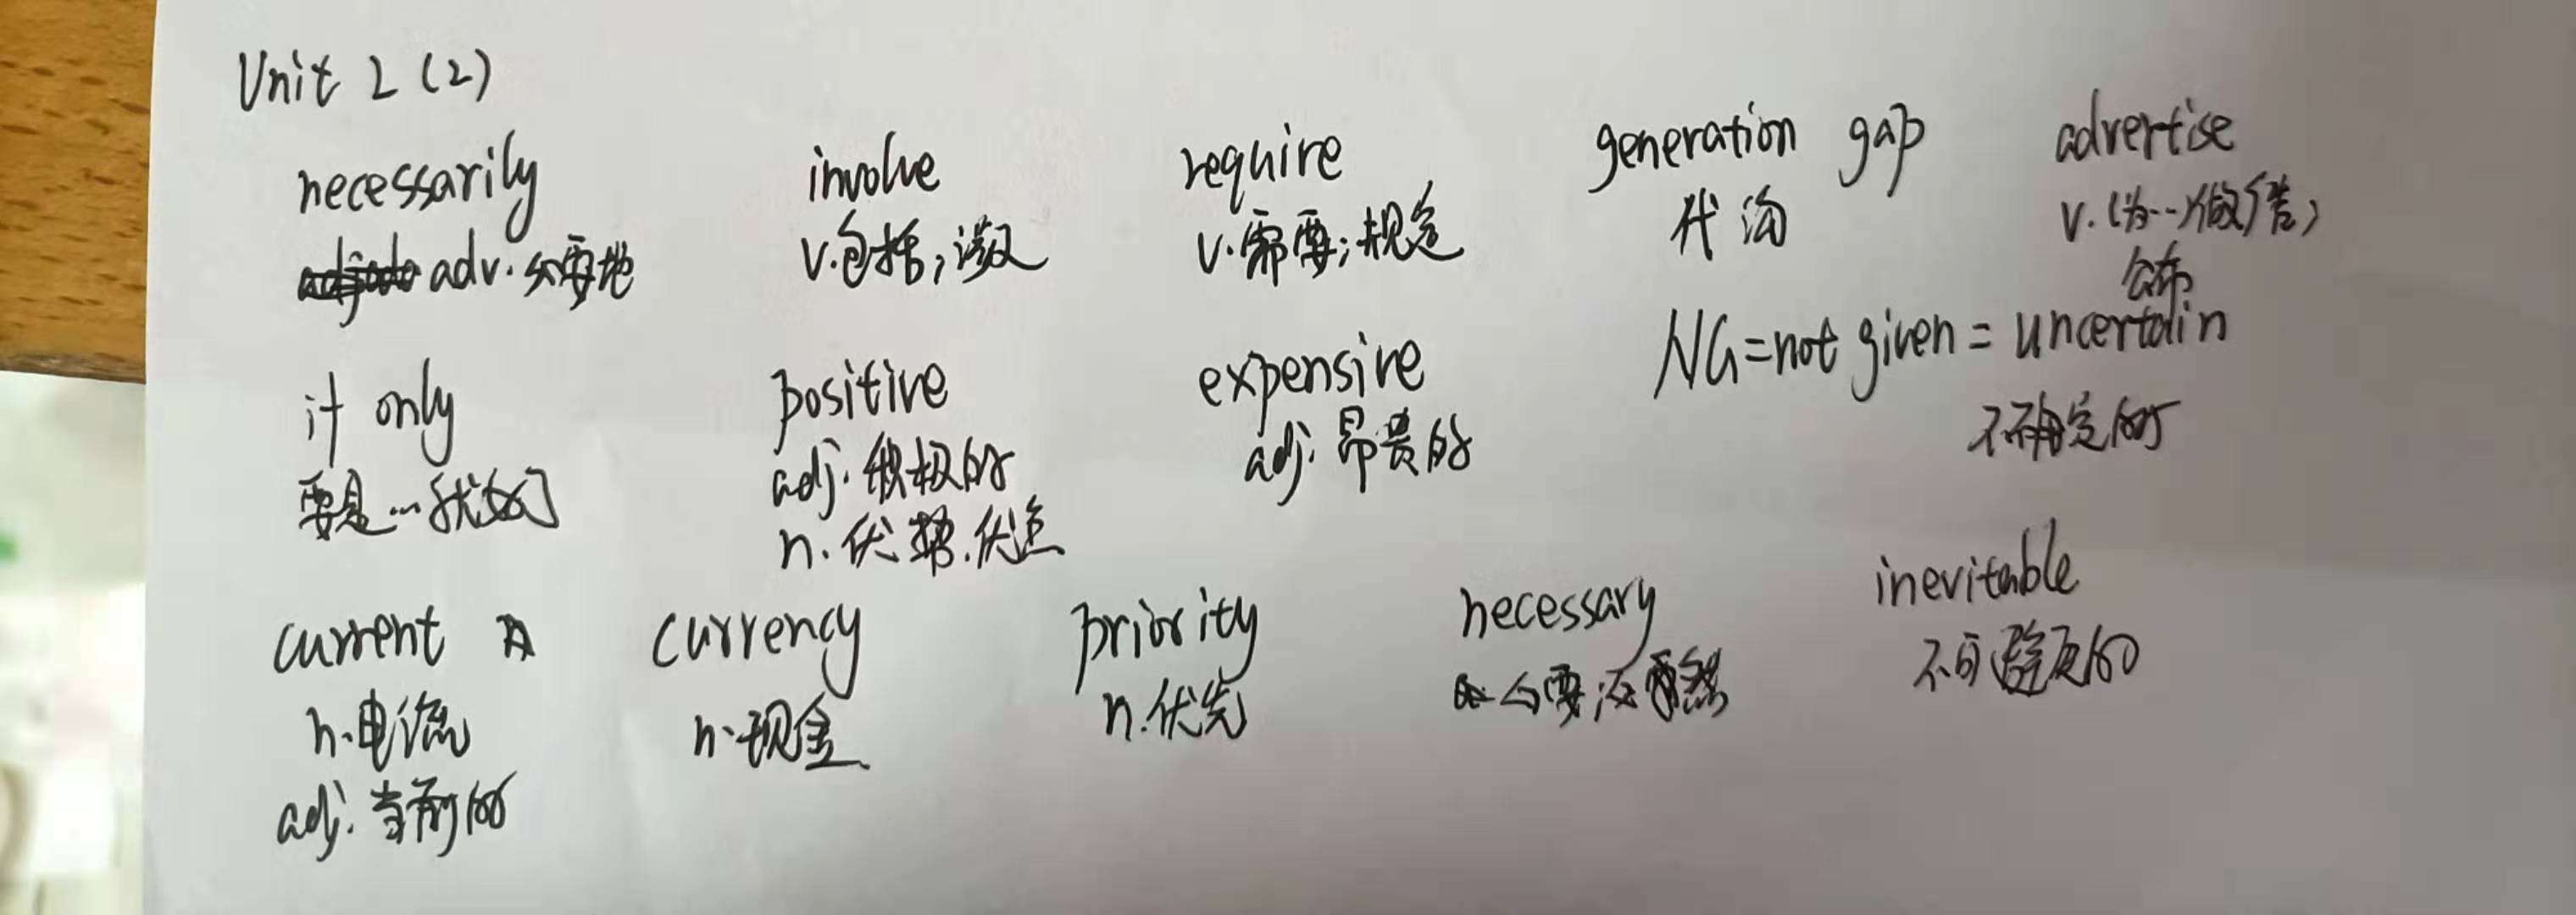 Unit 2 (2)
necessarily involve require generation gap advertise
adv. 必要地 v.包括;涉及 v.需要;规定 代沟 v.(为…)做广告;
公布
if only positive expensive NG=not given = uncertain
要是…就好了 adj.积极的 adj.昂贵的 不确定的
n.优势.优点
current currency priority necessary inevitable
n.电流 n.现金 n.优先 必要 不可避免的
adj.当前的